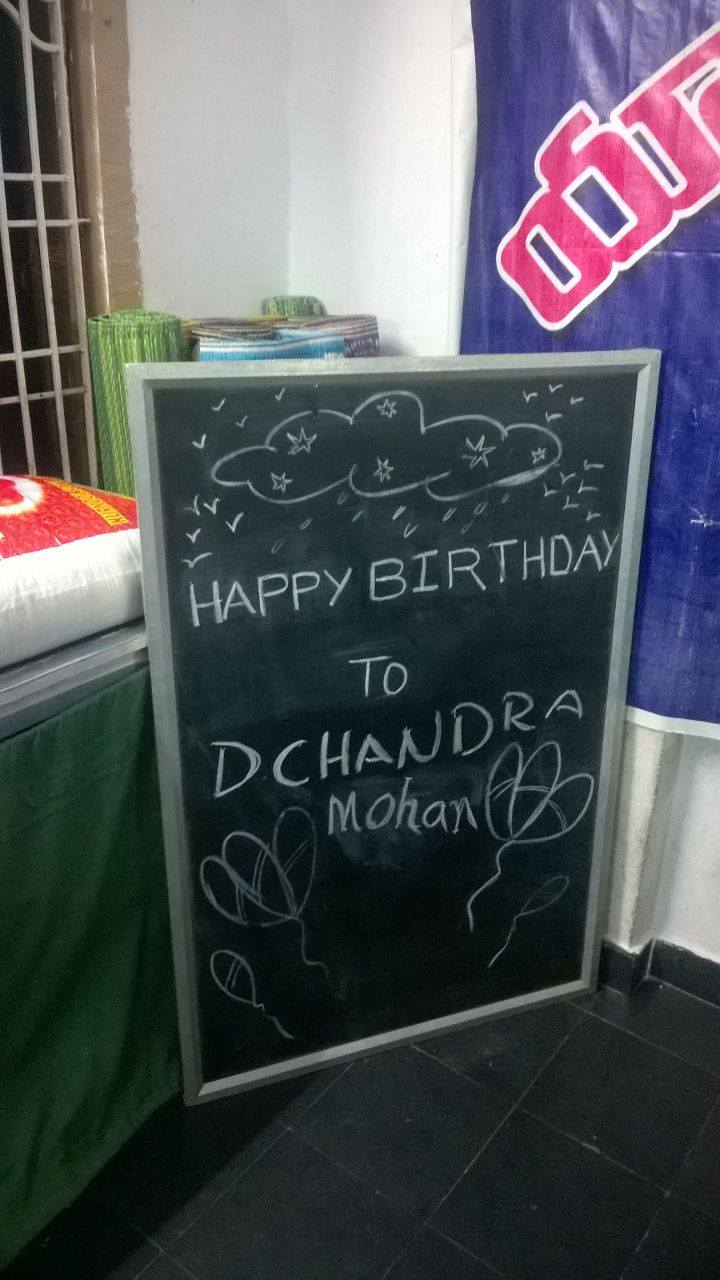 HAPPY BIRTHDAY
TO
DCHANDRA
Mohan